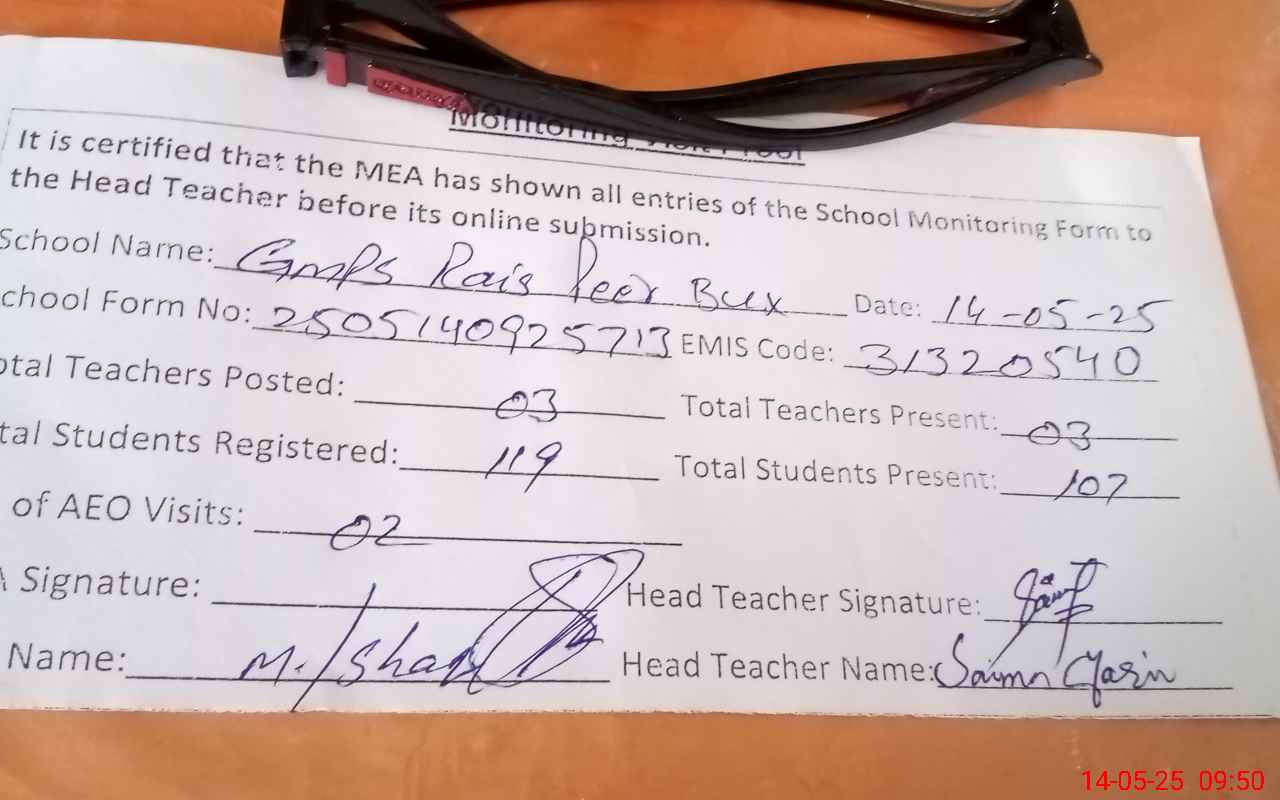 Monitoring Visit Proof
It is certified that the MEA has shown all entries of the School Monitoring Form to
the Head Teacher before its online submission.
School Name: GMPS Rais Peer Bux Date: 14-05-25
chool Form No: 2505140925713 EMIS Code: 31320540
otal Teachers Posted: 03 Total Teachers Present: 03
tal Students Registered: 119 Total Students Present: 107
of AEO Visits: 02
A Signature: Head Teacher Signature:
Name: M. Head Teacher Name: Saima
14-05-25 09:50